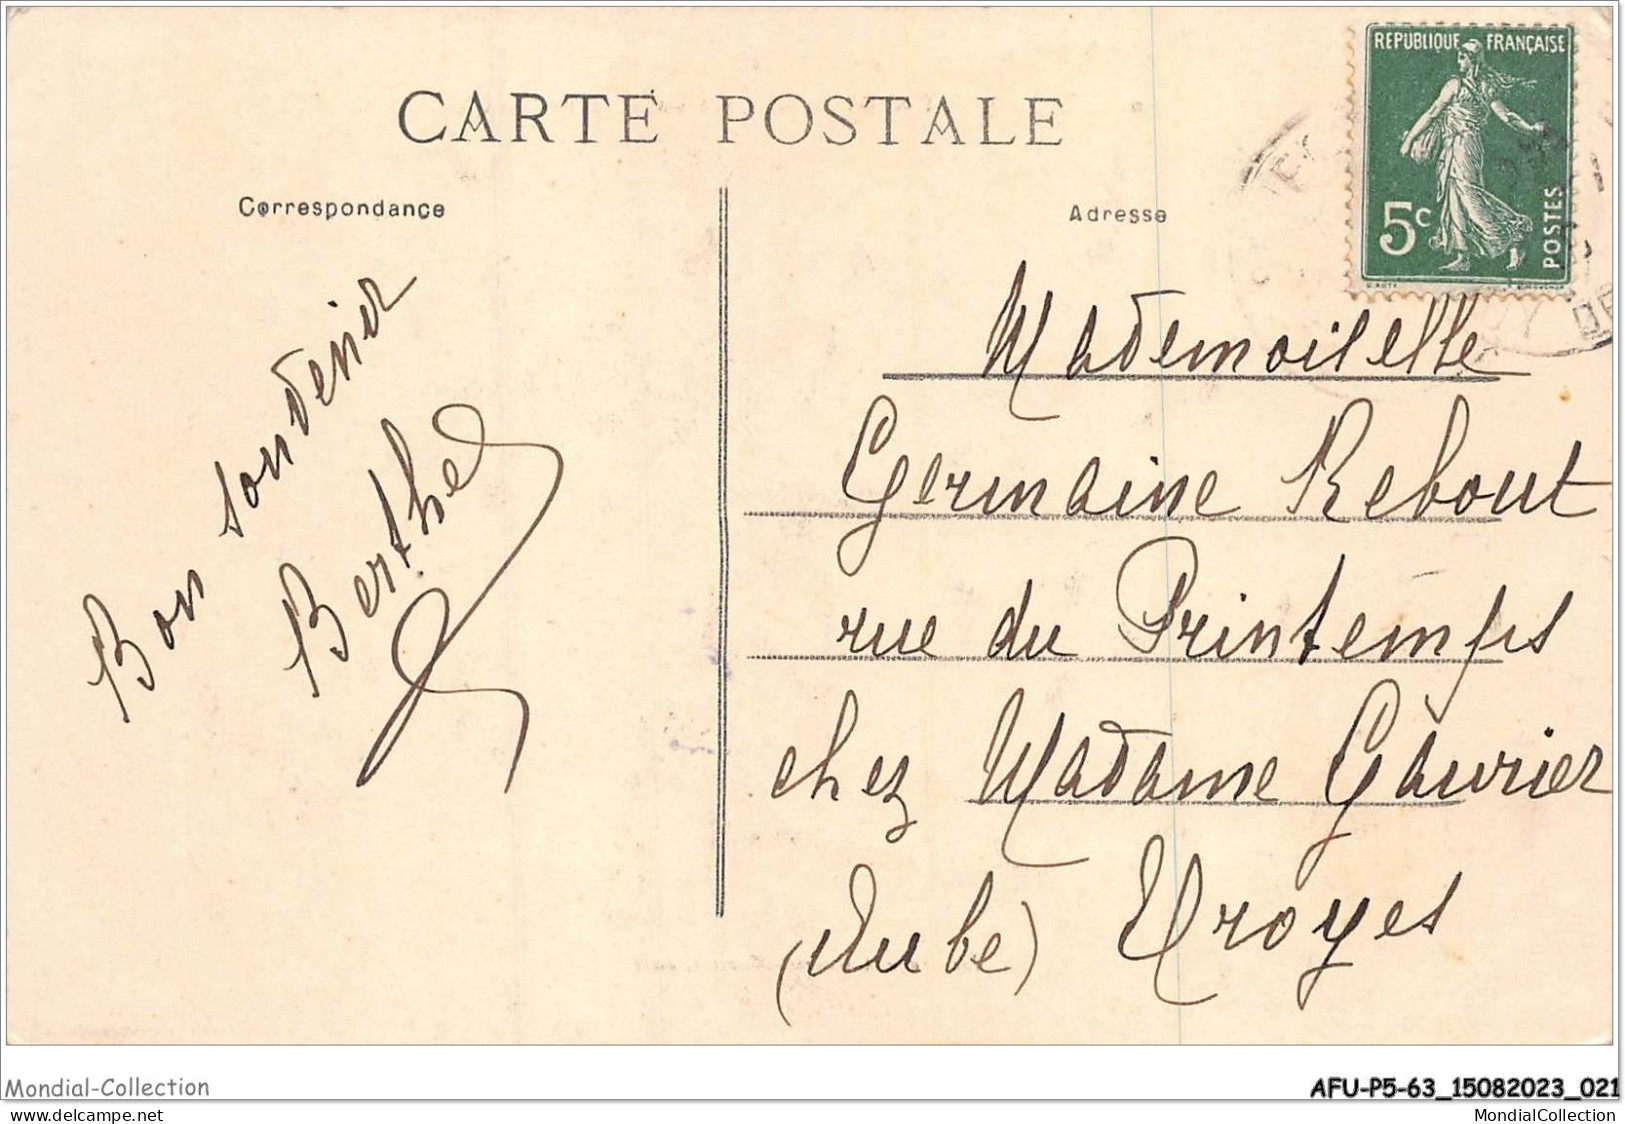 CARTE POSTALE
Correspondance
Adresse
REPUBLIQUE FRANÇAISE
5c
POSTES
Bon souvenir
Berthe
Mademoiselle
Germaine Rebout
rue du Printemps
chez Madame Gaurier
(Aube) Troyes
Mondial-Collection
AFU-P5-63_15082023_021
www.delcampe.net
MondialCollection